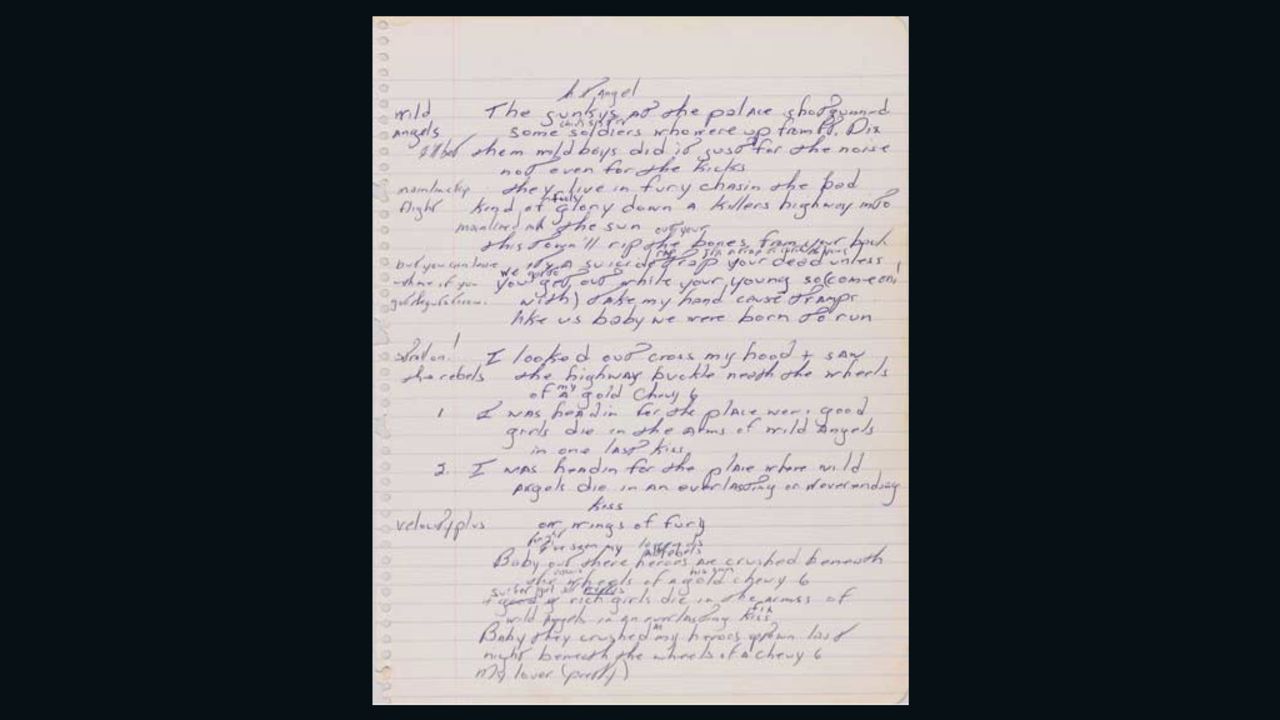 Angel
Wild The junkys at the palace shotgunned
Angels some soldiers who were up from Ft. Dix
them wild boys did it just for the noise
not even for the kicks
they live in fury chasin the bad
flight kind of glory down a killers highway into
the sun
out your
this town'll rip the bones from your back
but you can leave a suicide trap your dead unless
we gotta
you get out while your young so (come on!
with) take my hand cause tramps
like us baby we were born to run
I looked out cross my hood + saw
the rebels the highway buckle neath the wheels
my
of a gold Chevy 6
1. I was headin for the place were good
girls die in the arms of wild Angels
in one last kiss
2. I was headin for the place where wild
Angels die in an everlasting or neverending
kiss
velocity plus on wings of fury
I've seen my
Baby out there heroes are crushed beneath
the wheels of a gold chevy 6
rich girls die in the arms of
wild Angels in an everlasting kiss
Baby they crushed my heroes down last
night beneath the wheels of a Chevy 6
My lover (pretty)